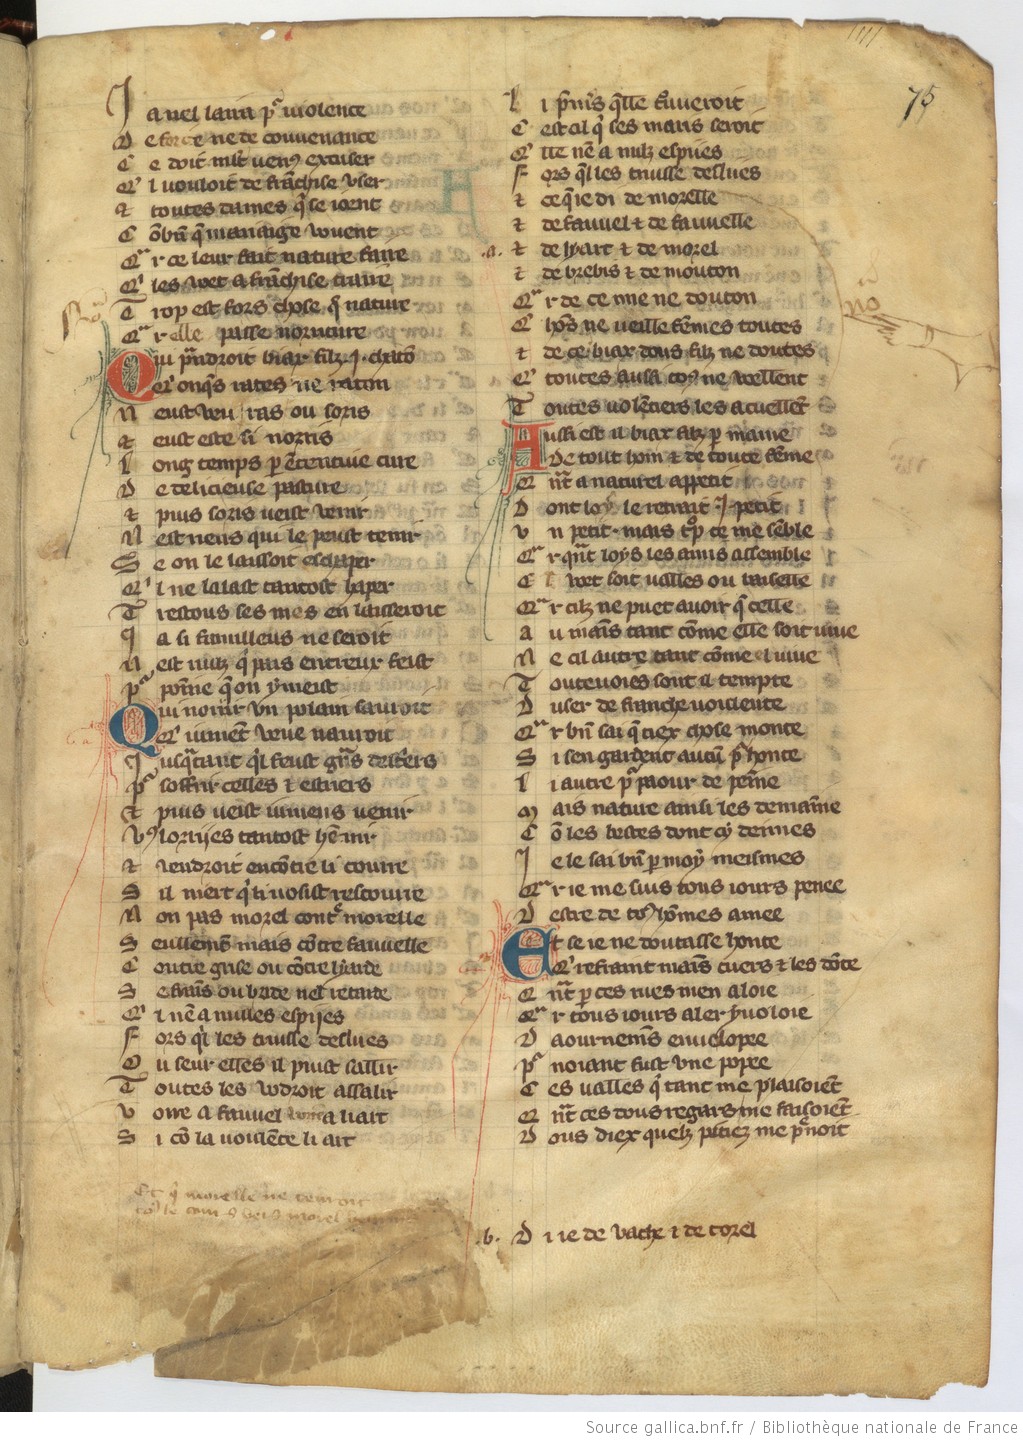 75
J a nel laira pͬ violence
D e force ne de couvenance
C e doit ml̅t venꝰ excuser
Qͥ l vouloit de frãchise user
⁊ toutes dames q̃ se ioent
C õbñ q̃ mariaige vouent
Qͣ r ce leur fait nature faire
Qͥ les vet a frãchise traire
T rop est fors chose q̃ nature
Qͣ r elle passe norreture
Q ui pñdroit biax filz .j. chatõ
Qͥ onq̃s rates ne raton
N eust veu ras ou soris
⁊ eust este si norris
L ong temps p ẽtentive cure
D e delicieuse pasture
⁊ puis soris veist venir
N est nens qui le peust tenir
S e on le laissoit eschaper
Qͥ l ne lalast tantost haper
T restous ses mes en laisseroit
J a si familleus ne seroit
N est nulz q̃ pais entreux feist
Pͬ poine q̃ on y meist
Q ui norrir vn polain sauroit
Qͥ iumẽt veue nauroit
J usq̃tant q̃l feust grãs destriers
Pͬ soffrir celles ⁊ estriers
⁊ puis veist iumens venir
Vꝰ lorriies tantost hẽnir
⁊ vendroit encõtre li courre
S il niert q̃ li nosist rescourre
N on pas morel contͬ morelle
S eullemẽt mais cõtre fauvelle
C outre grise ou cõtre lyarde
S e frains ou bride nel retarde
Qͥ l nẽ a nulles espijes
F ors q̃l les truisse desliees
O u seur elles il puist sallir
T outes les vodroit assalir
V oire a fauvel liart
S i cõ la voulẽte li art
Et q̃ morelle ne tenroit
L i pͬmͬs q̃lle trouveroit
C est cil q̃ ses maris seroit
Qͥ lle nẽ a nulz espiies
F ors q̃l les truisse desliees
⁊ ce q̃ ie di de morelle
⁊ de fauvel ⁊ de fauvelle
.a. ⁊ de lyart ⁊ de morel
⁊ de brebis ⁊ de mouton
Qͣ r de ce mie ne douton
Qͥ hõs ne veille fẽmes toutes
⁊ de ce biax dous filz ne doutes
Qͥ toutes ausi toꝰ ne veullent
T outes volẽtiers les acuellẽt
A ussi est il biax filz p mame
De tout hom ⁊ de toute fẽme
Q̃ nt̃ a naturel appetit
D ont loy le retrait .j. petit
V n petit mais tͦp ce me sẽble
Qͣ r qñt loys les a mis assemble
E l vet soit valles ou baiselle
Qͣ r cilz ne puet avoir q̃ celle
A u mains tant cõme elle soit vive
N e cil autre tant cõme il vive
T outevoies sont il tempte
D user de franche voulente
Qͣ r bñ sai q̃ tiex chose monte
S i sen gardent aucũ pͬ honte
L i autre pͬ paour de peĩne
M ais nature ainsi les demaĩne
C õ les bestes dont cy deimes
J e le sai bñ p moy meismes
Qͣ r ie me suis tous iours penee
D estre de toꝰ hõmes amee
E t se ie ne doutasse honte
Qͥ refraint mains cuers ⁊ les dõte
Q nt̃ p ces rues men aloie
Qͣ r tous iours aler y voloie
D aournemẽs envelopee
Pͬ noiant fust vne popee
C es valles q̃ tant me plaisoient
Q nt̃ ces dous regars me faisoient
D ous diex quelz pitiez me pͬnoit
.b. D i ie de vache ⁊ de torel
Source gallica.bnf.fr / Bibliothèque nationale de France